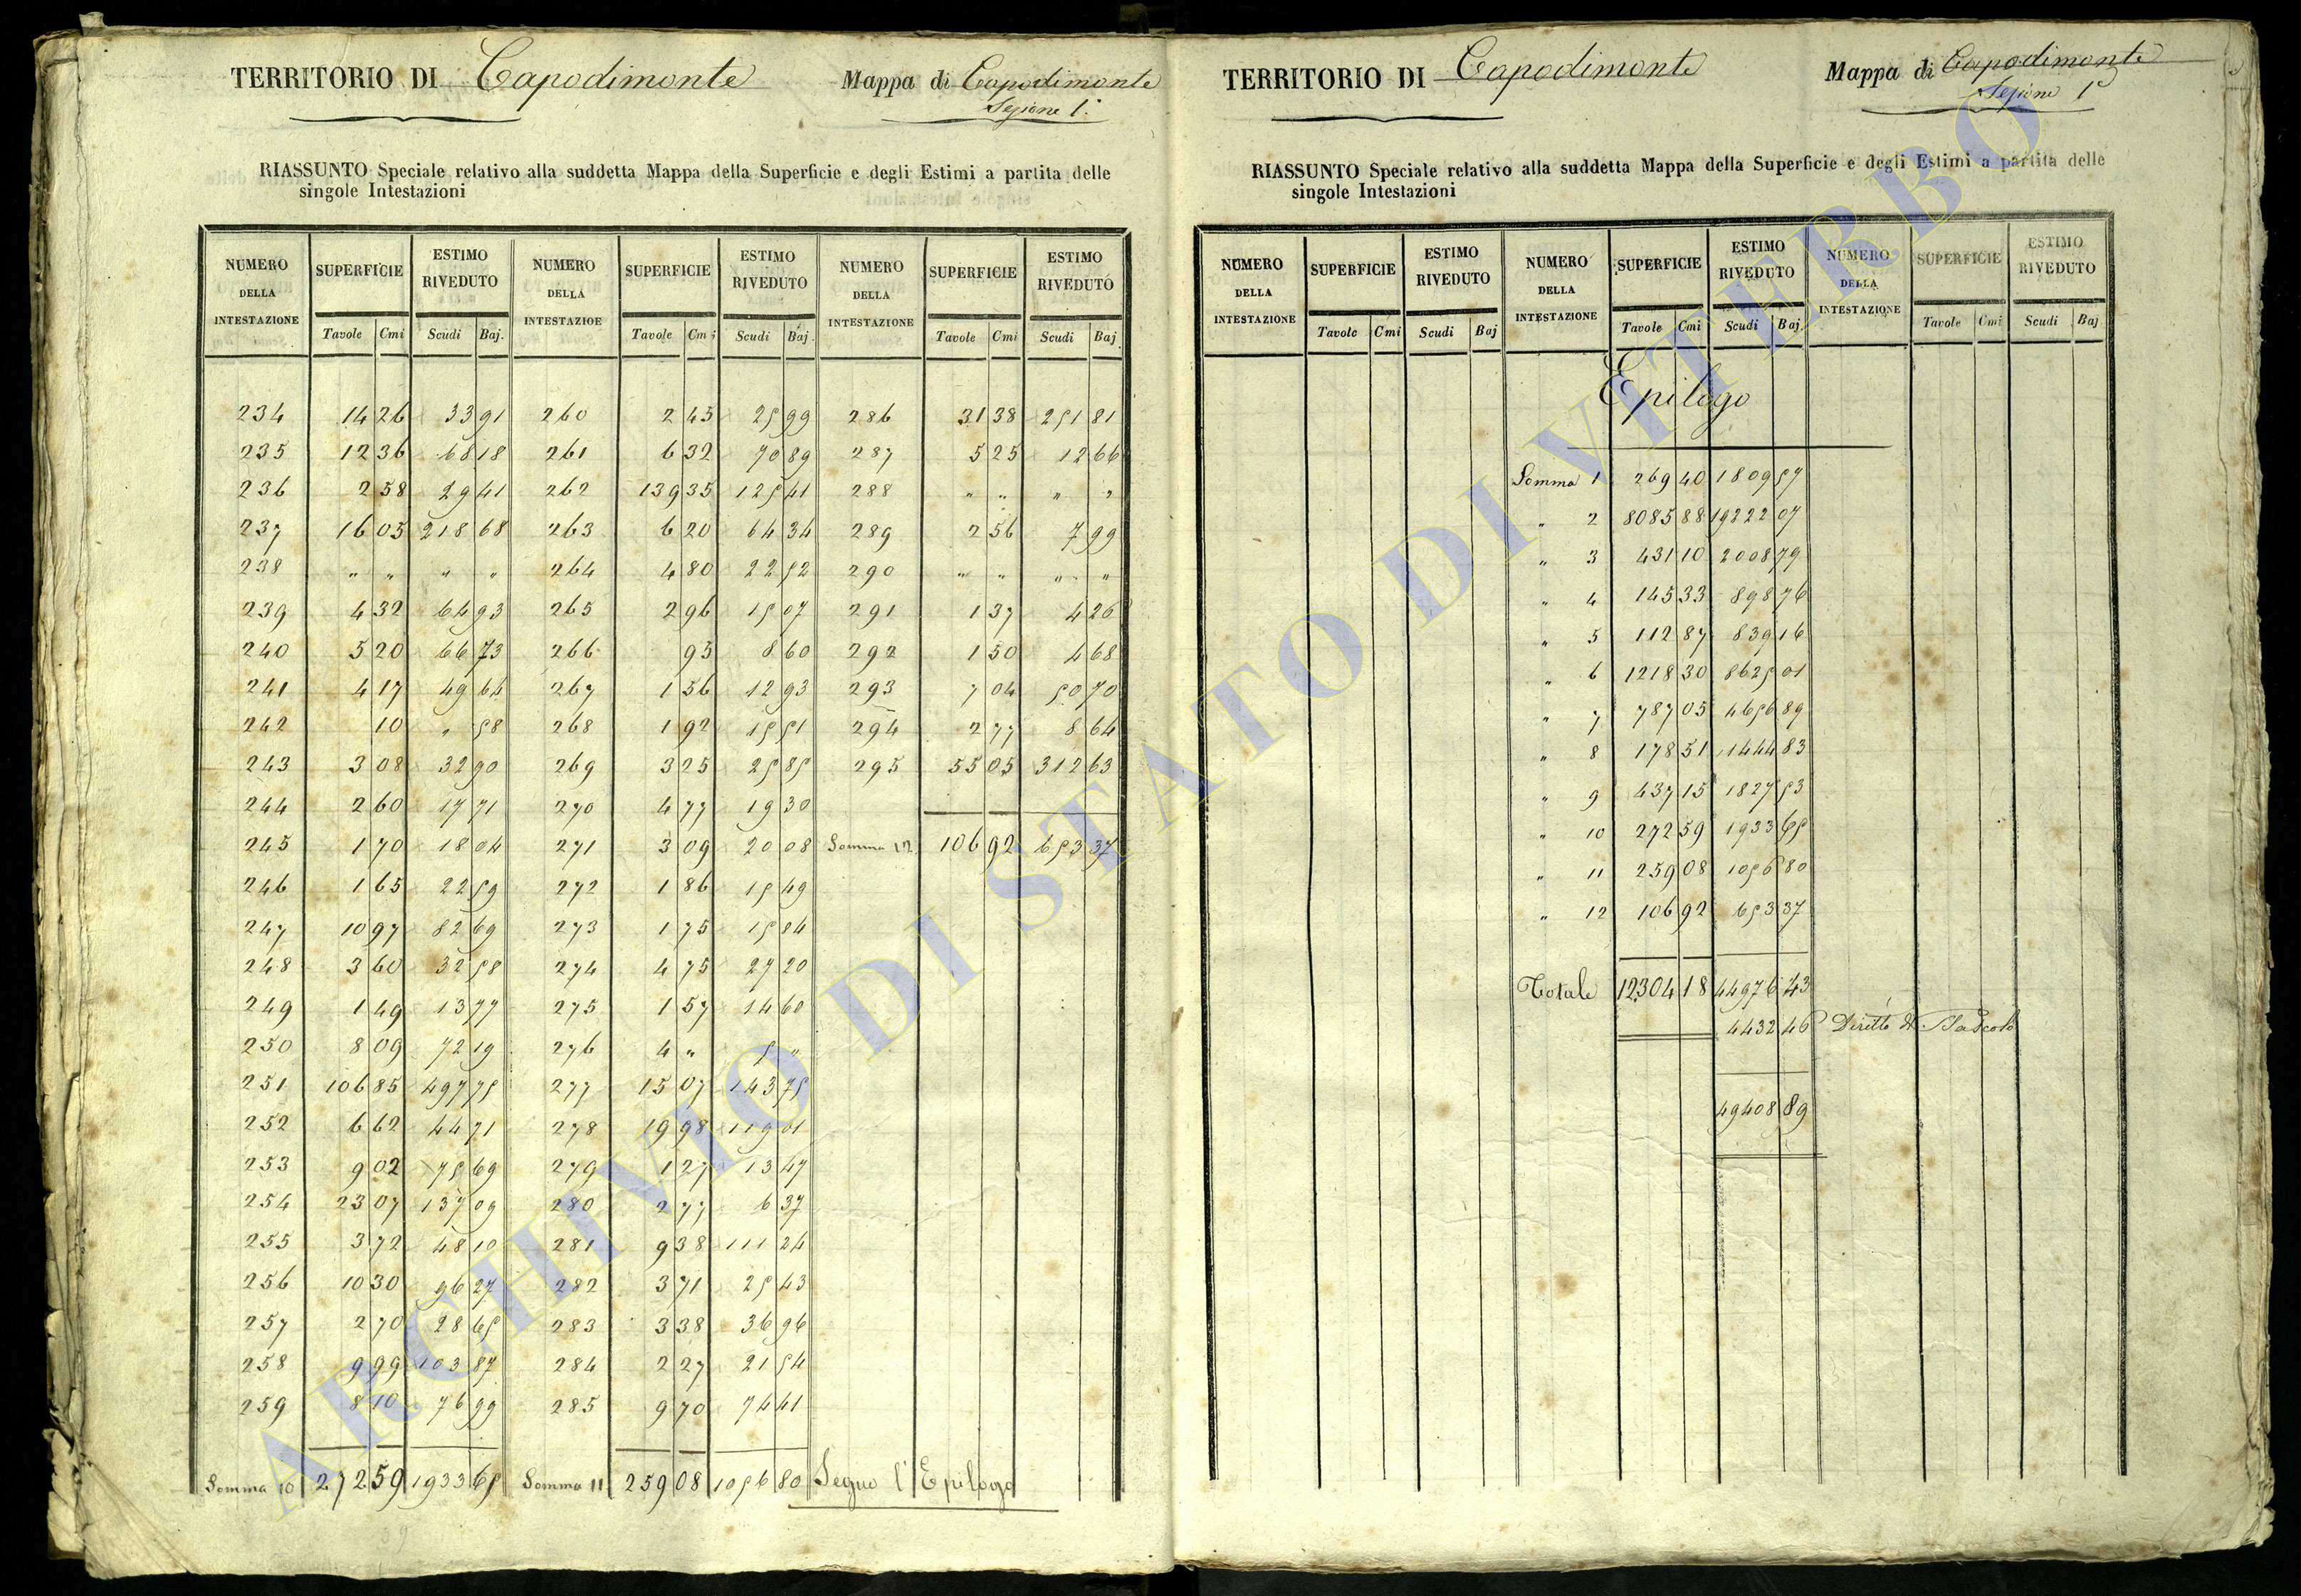 TERRITORIO DI Capodimonte Mappa di Capodimonte
Sezione 1ª
RIASSUNTO Speciale relativo alla suddetta Mappa della Superficie e degli Estimi a partita delle
singole Intestazioni
NUMERO DELLA INTESTAZIONE SUPERFICIE ESTIMO RIVEDUTO NUMERO DELLA INTESTAZIOE SUPERFICIE ESTIMO RIVEDUTO NUMERO DELLA INTESTAZIONE SUPERFICIE ESTIMO RIVEDUTO
Tavole Cmi Scudi Baj. Tavole Cmi Scudi Baj. Tavole Cmi Scudi Baj
234 14 26 33 91 260 2 45 25 99 286 31 38 251 81
235 12 36 68 18 261 6 32 70 89 287 5 25 12 66
236 2 58 29 41 262 139 35 125 41 288 " " " "
237 16 05 218 68 263 6 20 64 34 289 2 56 7 99
238 " " " " 264 4 80 22 52 290 " " " "
239 4 32 64 93 265 2 96 15 07 291 1 37 4 26
240 5 20 66 73 266 93 8 60 292 1 50 4 68
241 4 17 49 64 267 1 56 12 93 293 7 04 50 70
242 10 " 58 268 1 92 15 51 294 2 77 8 64
243 3 08 32 90 269 3 25 25 85 295 55 05 312 63
244 2 60 17 71 270 4 77 19 30
245 1 70 18 04 271 3 09 20 08 Somma 12 106 92 653 37
246 1 65 22 59 272 1 86 15 49
247 10 97 82 69 273 1 75 15 84
248 3 60 32 58 274 4 75 27 20
249 1 49 13 77 275 1 57 14 60
250 8 09 72 19 276 4 " 5 "
251 106 85 497 75 277 15 07 143 75
252 6 62 44 71 278 19 98 119 01
253 9 02 75 69 279 1 27 13 47
254 23 07 137 09 280 2 77 6 37
255 3 72 48 10 281 9 38 111 24
256 10 30 96 27 282 3 71 25 43
257 2 70 28 65 283 3 38 36 96
258 9 99 103 87 284 2 27 21 54
259 8 10 76 99 285 9 70 74 41
Somma 10 272 59 1933 65 Somma 11 259 08 1056 80 Segue l'Epilogo
TERRITORIO DI Capodimonte Mappa di Capodimonte
Sezione 1ª
RIASSUNTO Speciale relativo alla suddetta Mappa della Superficie e degli Estimi a partita delle
singole Intestazioni
NUMERO DELLA INTESTAZIONE SUPERFICIE ESTIMO RIVEDUTO NUMERO DELLA INTESTAZIONE SUPERFICIE ESTIMO RIVEDUTO NUMERO DELLA INTESTAZIONE SUPERFICIE ESTIMO RIVEDUTO
Tavole Cmi Scudi Baj Tavole Cmi Scudi Baj Tavole Cmi Scudi Baj
Epilogo
Somma 1 269 40 1809 57
" 2 8085 88 19222 07
" 3 431 10 2008 79
" 4 145 33 898 76
" 5 112 87 839 16
" 6 1218 30 8625 01
" 7 787 05 4656 89
" 8 178 51 1444 83
" 9 437 15 1827 53
" 10 272 59 1933 65
" 11 259 08 1056 80
" 12 106 92 653 37
Totale 12304 18 44976 43
4432 46 Diritto di Pascolo
49408 89
ARCHIVIO DI STATO DI VITERBO